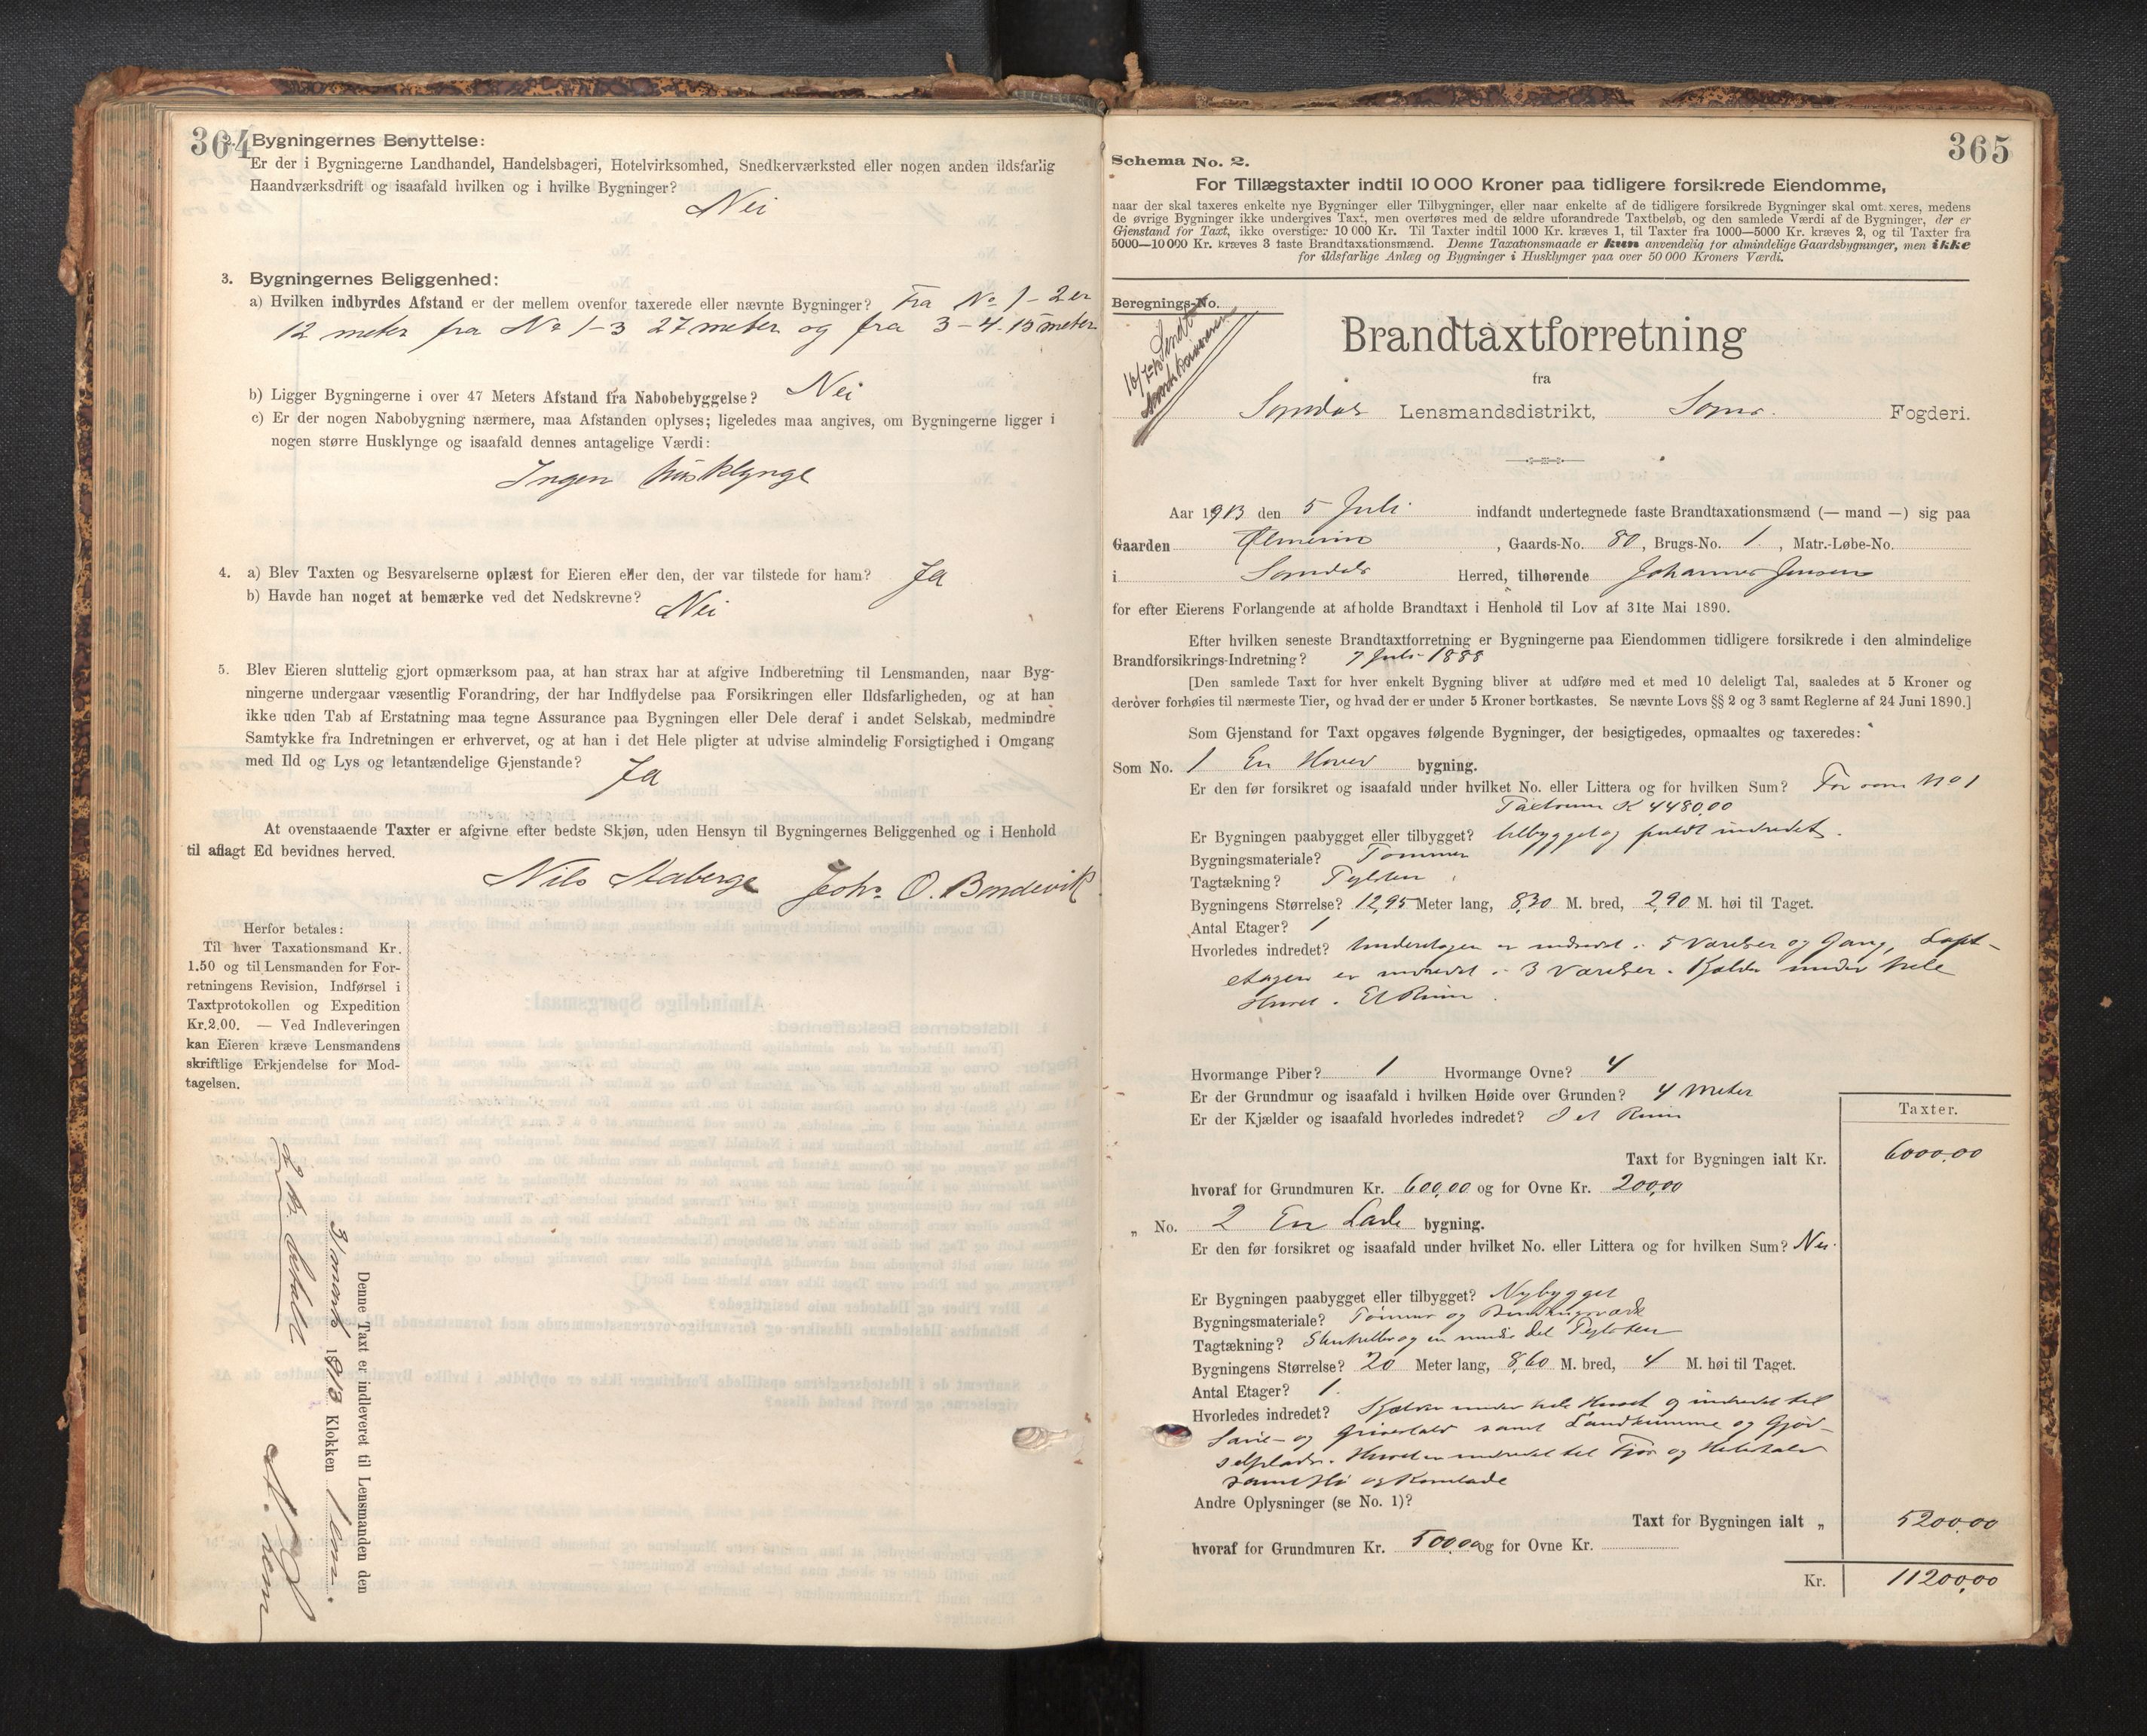 364
2. Bygningernes Benyttelse:
Er der i Bygningerne Landhandel, Handelsbageri, Hotelvirksomhed, Snedkerværksted eller nogen anden ildsfarlig
Haandværksdrift og isaafald hvilken og i hvilke Bygninger?
Nei
3. Bygningernes Beliggenhed:
a) Hvilken indbyrdes Afstand er der mellem ovenfor taxerede eller nævnte Bygninger? Fra No 1 - 2 er
12 meter fra No 1-3 27 meter og fra 3-4. 15 meter
b) Ligger Bygningerne i over 47 Meters Afstand fra Nabobebyggelse? Nei
c) Er der nogen Nabobygning nærmere, maa Afstanden oplyses; ligeledes maa angives, om Bygningerne ligger i
nogen større Husklynge og isaafald dennes antagelige Værdi:
Ingen husklynge
4. a) Blev Taxten og Besvarelserne oplæst for Eieren eller den, der var tilstede for ham? Ja
b) Havde han noget at bemærke ved det Nedskrevne? Nei
5. Blev Eieren sluttelig gjort opmærksom paa, at han strax har at afgive Indberetning til Lensmanden, naar Byg-
ningerne undergaar væsentlig Forandring, der har Indflydelse paa Forsikringen eller Ildsfarligheden, og at han
ikke uden Tab af Erstatning maa tegne Assurance paa Bygningen eller Dele deraf i andet Selskab, medmindre
Samtykke fra Indretningen er erhvervet, og at han i det Hele pligter at udvise almindelig Forsigtighed i Omgang
med Ild og Lys og letantændelige Gjenstande? Ja
At ovenstaaende Taxter er afgivne efter bedste Skjøn, uden Hensyn til Bygningernes Beliggenhed og i Henhold
til aflagt Ed bevidnes herved.
Nils Staberge Johs O. Bondevik
Herfor betales:
Til hver Taxationsmand Kr.
1.50 og til Lensmanden for For-
retningens Revision, Indførsel i
Taxtprotokollen og Expedition
Kr. 2.00. — Ved Indleveringen
kan Eieren kræve Lensmandens
skriftlige Erkjendelse for Mod-
tagelsen.
Denne Taxt er indleveret til Lensmanden den
1913 Klokken 1
2 Kr betalt
365
Schema No. 2.
For Tillægstaxter indtil 10 000 Kroner paa tidligere forsikrede Eiendomme,
naar der skal taxeres enkelte nye Bygninger eller Tilbygninger, eller naar enkelte af de tidligere forsikrede Bygninger skal omt.xeres, medens
de øvrige Bygninger ikke undergives Taxt, men overføres med de ældre uforandrede Taxtbeløb, og den samlede Værdi af de Bygninger, der er
Gjenstand for Taxt, ikke overstiger 10 000 Kr. Til Taxter indtil 1000 Kr. kræves 1, til Taxter fra 1000—5000 Kr. kræves 2, og til Taxter fra
5000—10 000 Kr. kræves 3 faste Brandtaxationsmænd. Denne Taxationsmaade er kun anvendelig for almindelige Gaardsbygninger, men ikke
for ildsfarlige Anlæg og Bygninger i Husklynger paa over 50 000 Kroners Værdi.
Beregnings-No.
16/7-13 Sendt
Brandtaxtforretning
fra
Lensmandsdistrikt, Fogderi.
Aar 1913 den 5 Juli indfandt undertegnede faste Brandtaxationsmænd (— mand —) sig paa
Gaarden , Gaards-No. 80, Brugs-No. 1. , Matr.-Løbe-No.
i Herred, tilhørende Johannes Jensen
for efter Eierens Forlangende at afholde Brandtaxt i Henhold til Lov af 31te Mai 1890.
Efter hvilken seneste Brandtaxtforretning er Bygningerne paa Eiendommen tidligere forsikrede i den almindelige
Brandforsikrings-Indretning? 7 Juli 1888
[Den samlede Taxt for hver enkelt Bygning bliver at udføre med et med 10 deleligt Tal, saaledes at 5 Kroner og
derover forhøies til nærmeste Tier, og hvad der er under 5 Kroner bortkastes. Se nævnte Lovs §§ 2 og 3 samt Reglerne af 24 Juni 1890.]
Som Gjenstand for Taxt opgaves følgende Bygninger, der besigtigedes, opmaaltes og taxeredes:
Som No. 1 En Hoved bygning.
Er den før forsikret og isaafald under hvilket No. eller Littera og for hvilken Sum? Før som No 1
Taxtsum K 4480,00
Er Bygningen paabygget eller tilbygget? tilbygget og fuldt indredet.
Bygningsmateriale? Tømmer
Tagtækning? Teglsten
Bygningens Størrelse? 12,95 Meter lang, 8,30 M. bred, 2,90 M. høi til Taget.
Antal Etager? 1
Hvorledes indredet? Underetagen er indredet i 5 Værelser og Gang, Loft-
etagen er indredet i 3 Værelser. Kjelder under hele
Huset. Et Rum.
Hvormange Piber? 1 Hvormange Ovne? 4
Er der Grundmur og isaafald i hvilken Høide over Grunden? 4 Meter
Er der Kjælder og isaafald hvorledes indredet? I et Rum
Taxter.
Taxt for Bygningen ialt Kr. 6000,00
hvoraf for Grundmuren Kr. 600,00 og for Ovne Kr. 200,00
„ No. 2 En Lade bygning.
Er den før forsikret og isaafald under hvilket No. eller Littera og for hvilken Sum? Nei.
Er Bygningen paabygget eller tilbygget? Nybygget
Bygningsmateriale? Tømmer og Bindingsværk
Tagtækning? Skifer og en mindre del Teglsten
Bygningens Størrelse? 20 Meter lang, 8,60 M. bred, 4 M. høi til Taget.
Antal Etager? 1.
Hvorledes indredet? Kjelder under hele Huset og indredet til
og samt Landkumme og Gjød-
selplads. Huset er indredet til Fjøs og Hestestald
samt Hø og Kornlade
Andre Oplysninger (se No. 1)?
Taxt for Bygningen ialt „ 5200,00
hvoraf for Grundmuren Kr. 500,00 og for Ovne Kr.
Kr. 11200,00